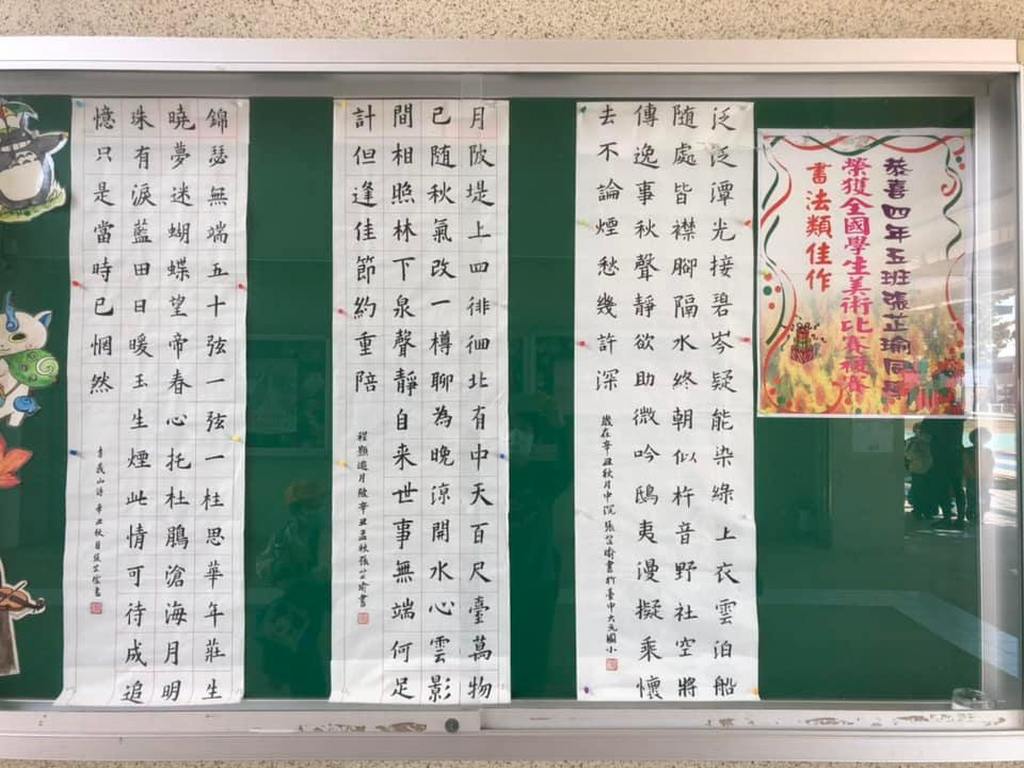 恭喜四年五班張芷瑜同學
榮獲全國學生美術比賽複賽
書法類佳作
泛泛潭光接碧岑疑能染綠上衣雲泊船
随處皆襟腳隔水終朝似杵音野社空將
傳逸事秋聲靜欲助微吟鴟夷漫擬乘懷
去不論煙愁幾許深
歲在辛丑秋月中浣張芷瑜書於臺中大元國小
月陂堤上四徘徊北有中天百尺臺萬物
已随秋氣改一樽聊為晚涼開水心雲影
間相照林下泉聲靜自来世事無端何足
計但逢佳節約重陪
程顥遊月陂辛丑孟秋張芷瑜書
錦瑟無端五十弦一弦一柱思華年莊生
曉夢迷蝴蝶望帝春心托杜鵑滄海月明
珠有淚藍田日暖玉生煙此情可待成追
憶只是當時已惘然
李義山詩辛丑秋月張芷瑜書